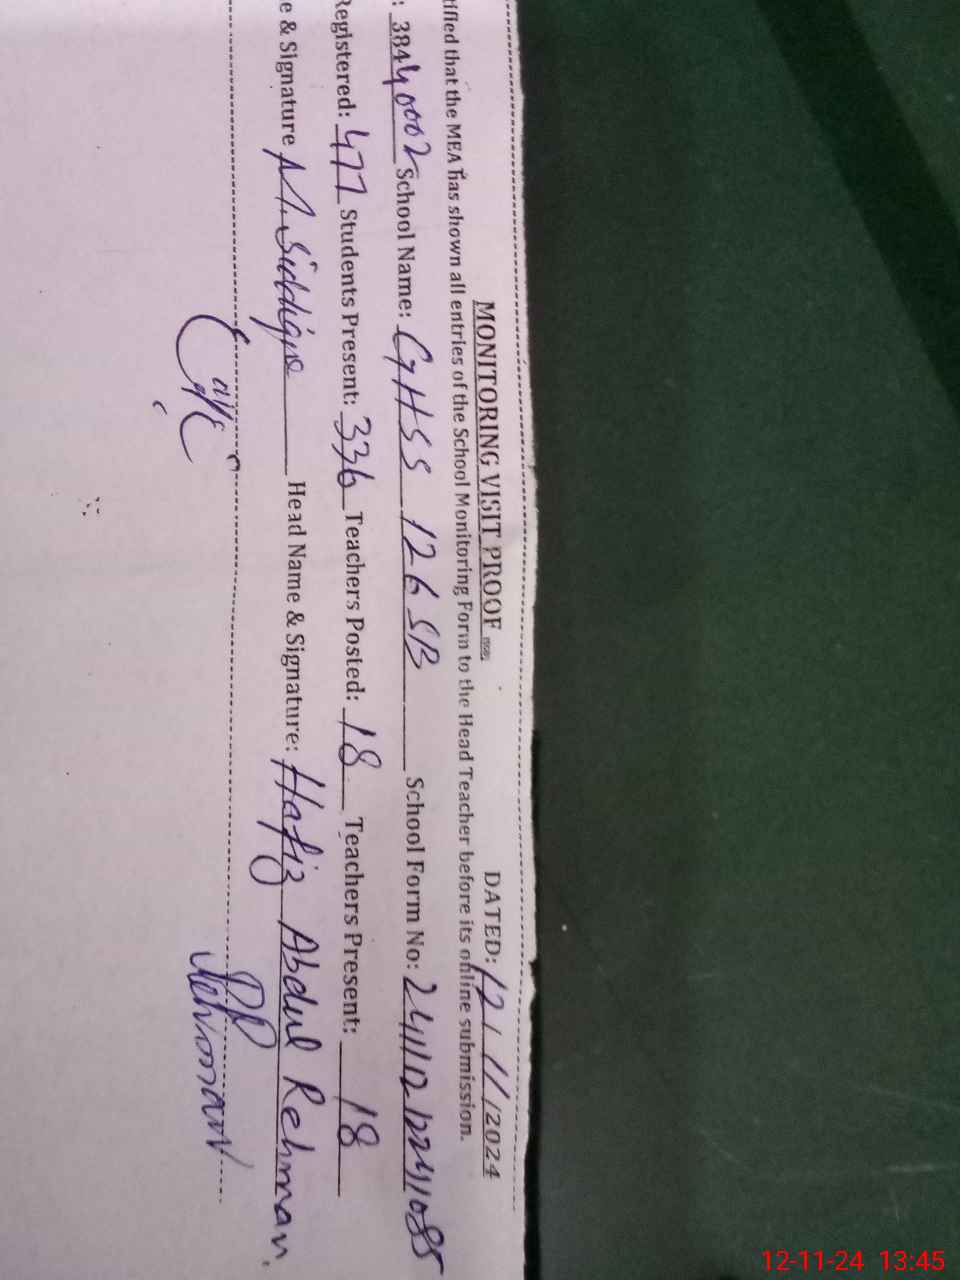 MONITORING VISIT PROOF DATED: 12/11/2024
tified that the MEA has shown all entries of the School Monitoring Form to the Head Teacher before its online submission.
: 38440002 School Name: GHSS 126 SB School Form No:
Registered: 477 Students Present: 336 Teachers Posted: 18 Teachers Present: 18
e & Signature M. Siddique Head Name & Signature: Hafiz Abdul Rehman
Rehman
12-11-24 13:45